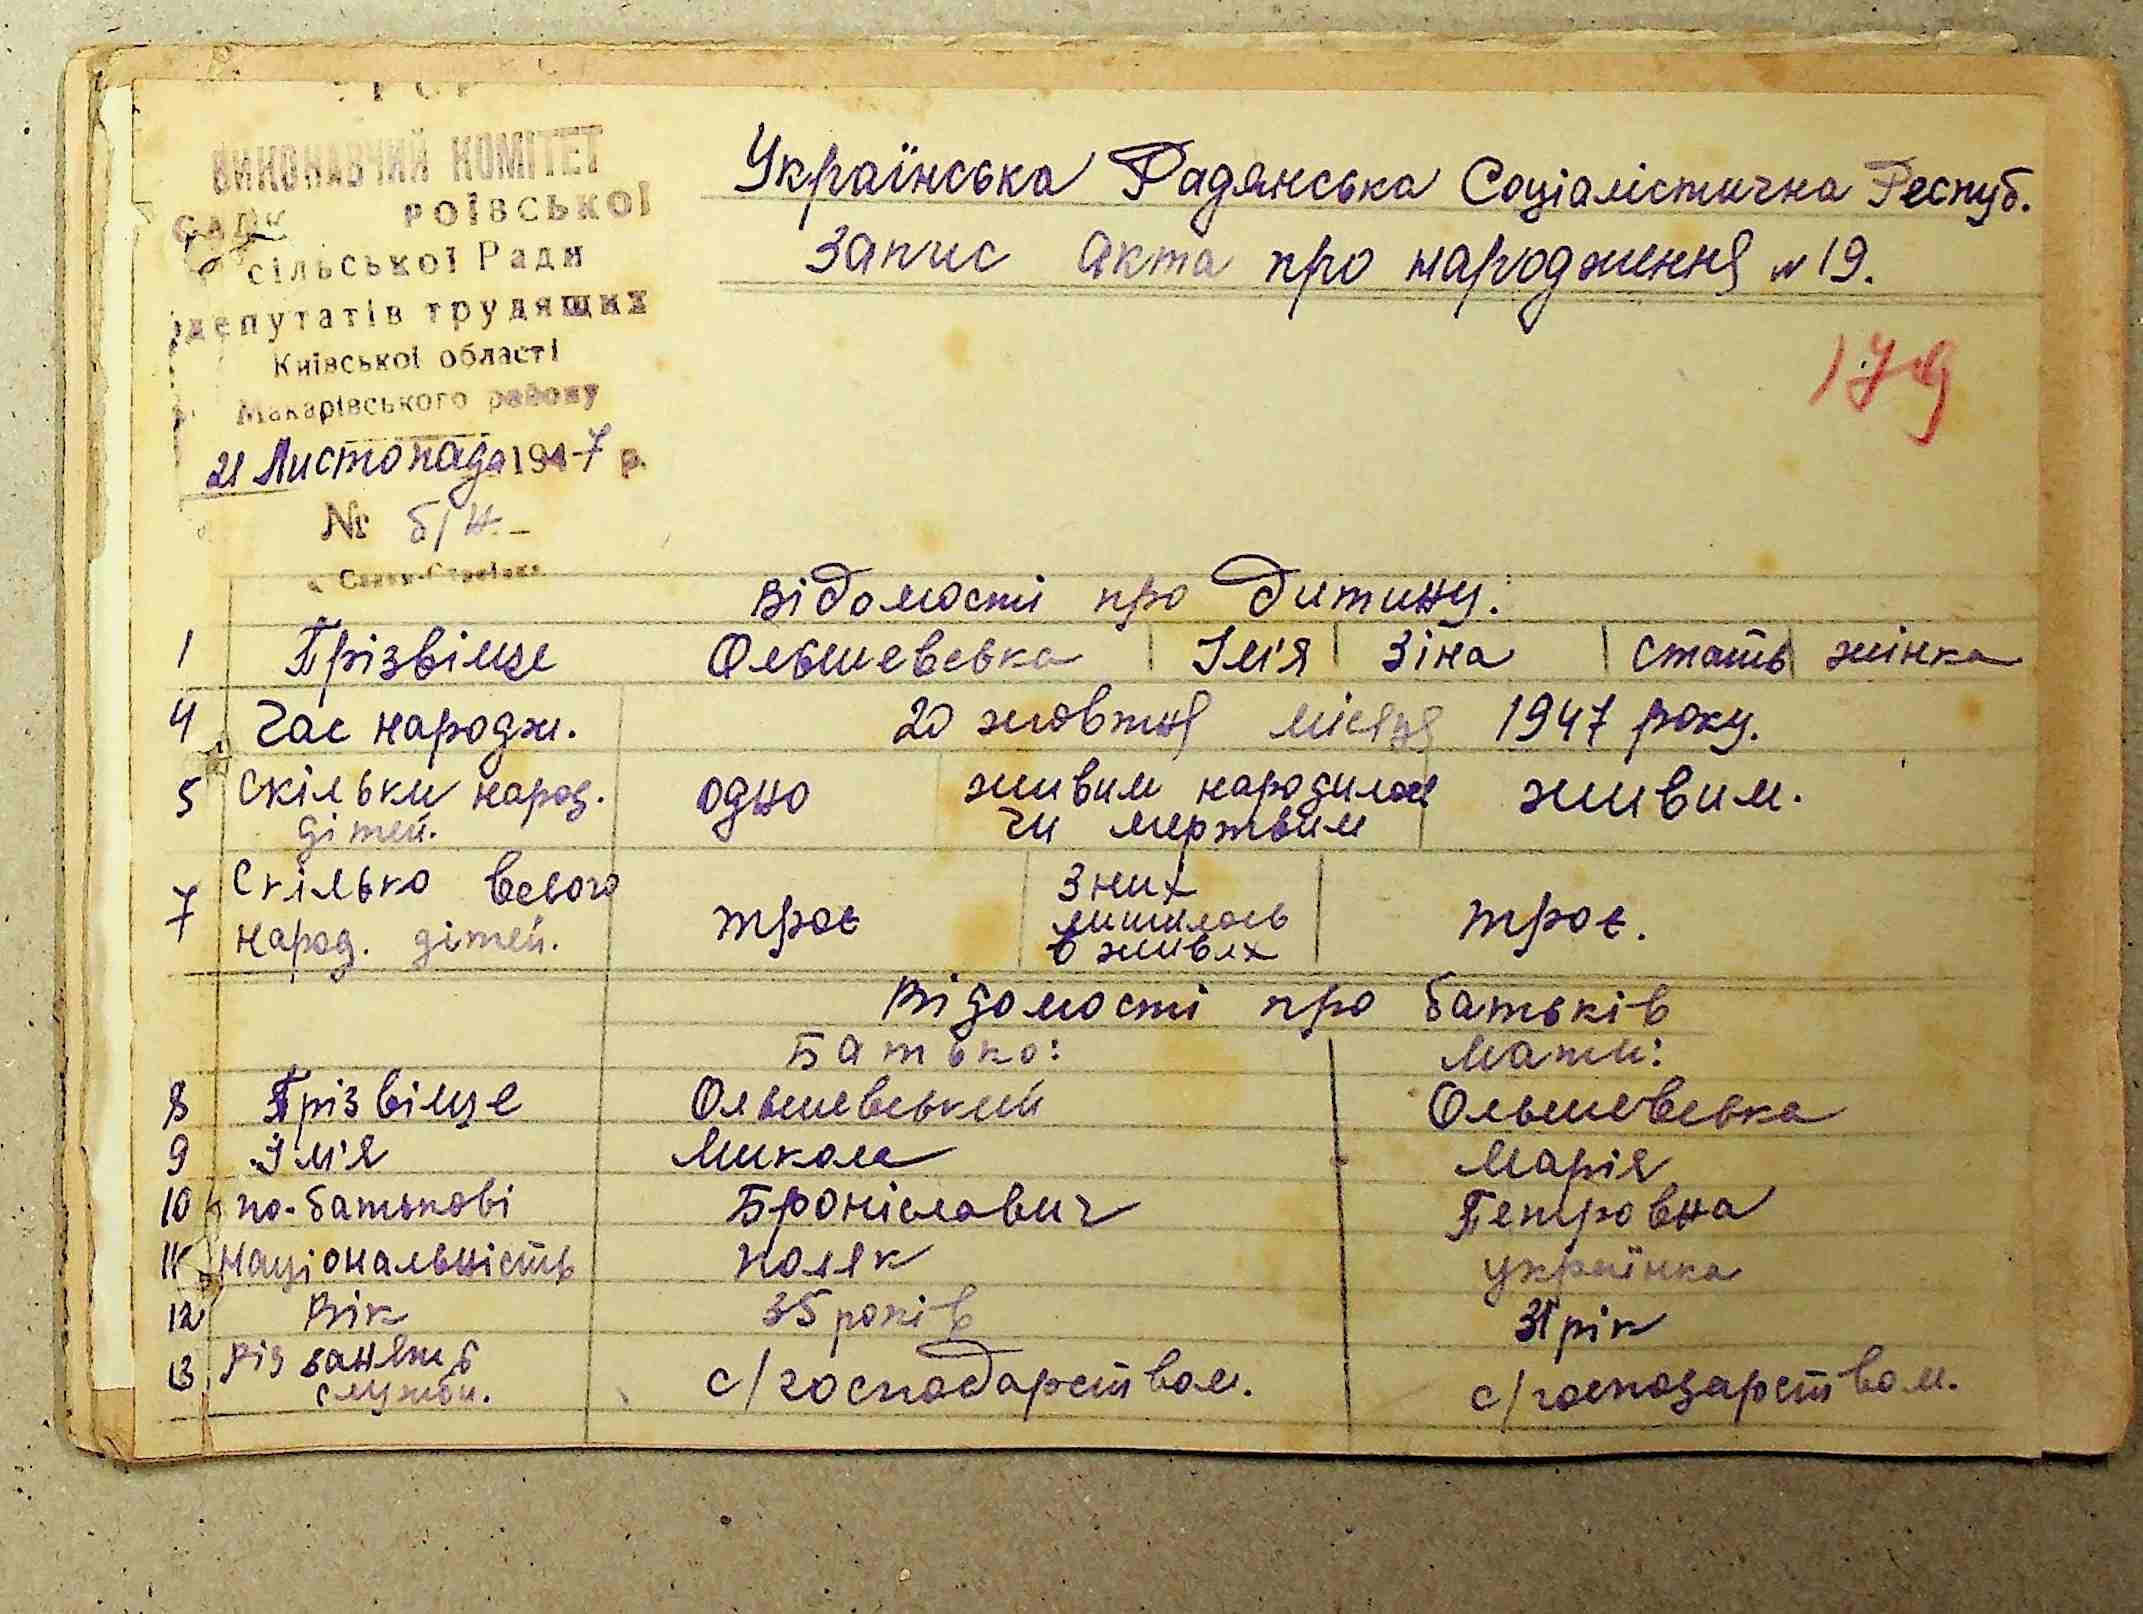 УРСР
ВИКОНАВЧИЙ КОМІТЕТ
РОЇВСЬКОЇ
сільської Ради
депутатів трудящих
Київської області
Макарівського району
21 Листопада 1947 р.
№ б/н.
Українська Радянська Соціалістична Респуб.
Запис акта про народження № 19.
179
Відомості про дитину:
1 Прізвіще Ольшевська Ім'я Зіна стать жінка
4 Час народж. 20 жовтня місяця 1947 року.
5 Скільки народ. дітей. одно живим народилося чи мертвим живим.
7 Скілько всього народ. дітей. троє З них лишилось в живих троє.
Відомості про батьків
Батько: Мати:
8 Прізвіще Ольшевський Ольшевська
9 Ім'я Микола Марія
10 по-батькові Броніславич Петровна
11 Національність поляк українка
12 Вік 35 років 31 рік
13 Різ занять служби. с/господарством. с/господарством.